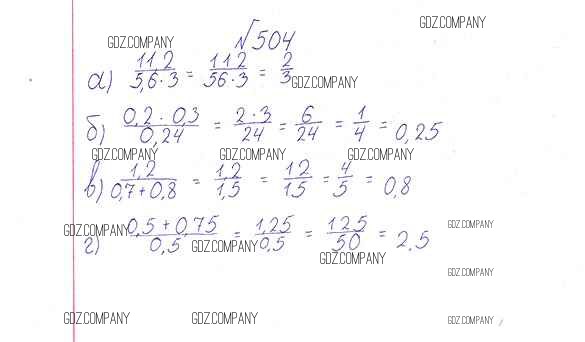 GDZ.COMPANY
GDZ.COMPANY
№504
а) 11,2 / 5,6·3 = 112 / 56·3 = 2/3
GDZ.COMPANY
б) 0,2·0,3 / 0,24 = 2·3 / 24 = 6/24 = 1/4 = 0,25
GDZ.COMPANY GDZ.COMPANY GDZ.COMPANY
в) 1,2 / 0,7+0,8 = 1,2 / 1,5 = 12/15 = 4/5 = 0,8
GDZ.COMPANY
г) 0,5+0,75 / 0,5 = 1,25 / 0,5 = 125/50 = 2,5
GDZ.COMPANY
GDZ.COMPANY GDZ.COMPANY
GDZ.COMPANY
GDZ.COMPANY GDZ.COMPANY GDZ.COMPANY